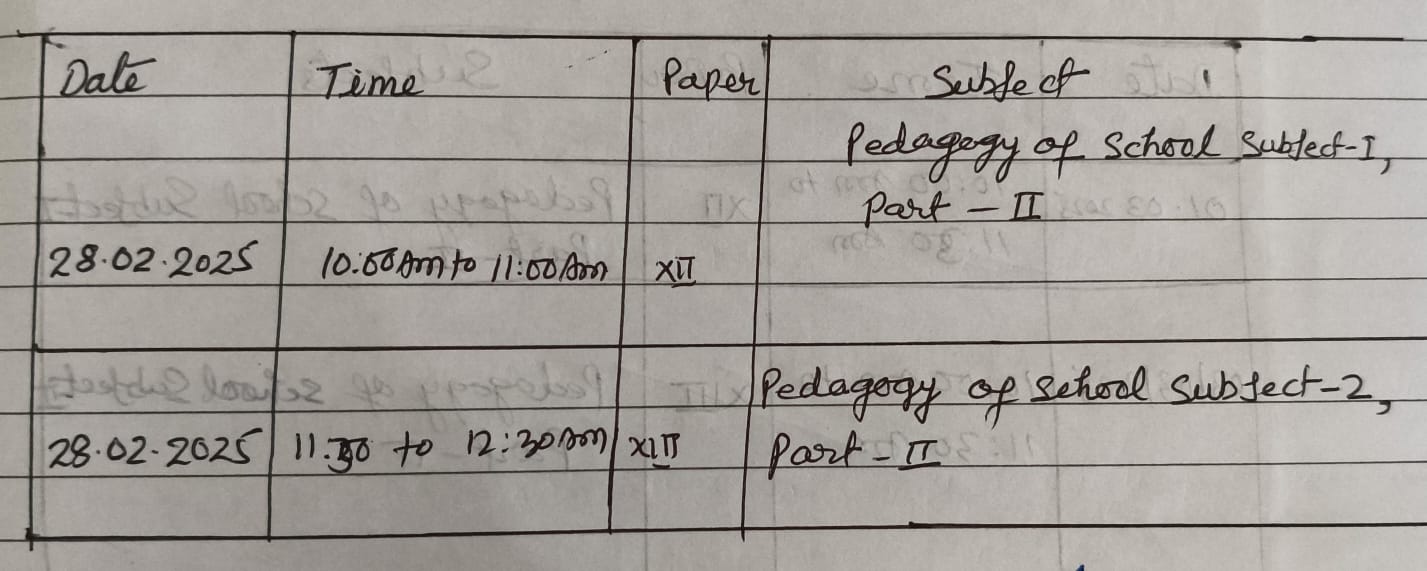 Date Time Paper Subject
Pedagogy of School Subject-I,
Part - II
28.02.2025 10:00 Am to 11:00 Am XII
Pedagogy of School Subject-2,
28.02.2025 11.30 to 12:30 Am XIII Part - II